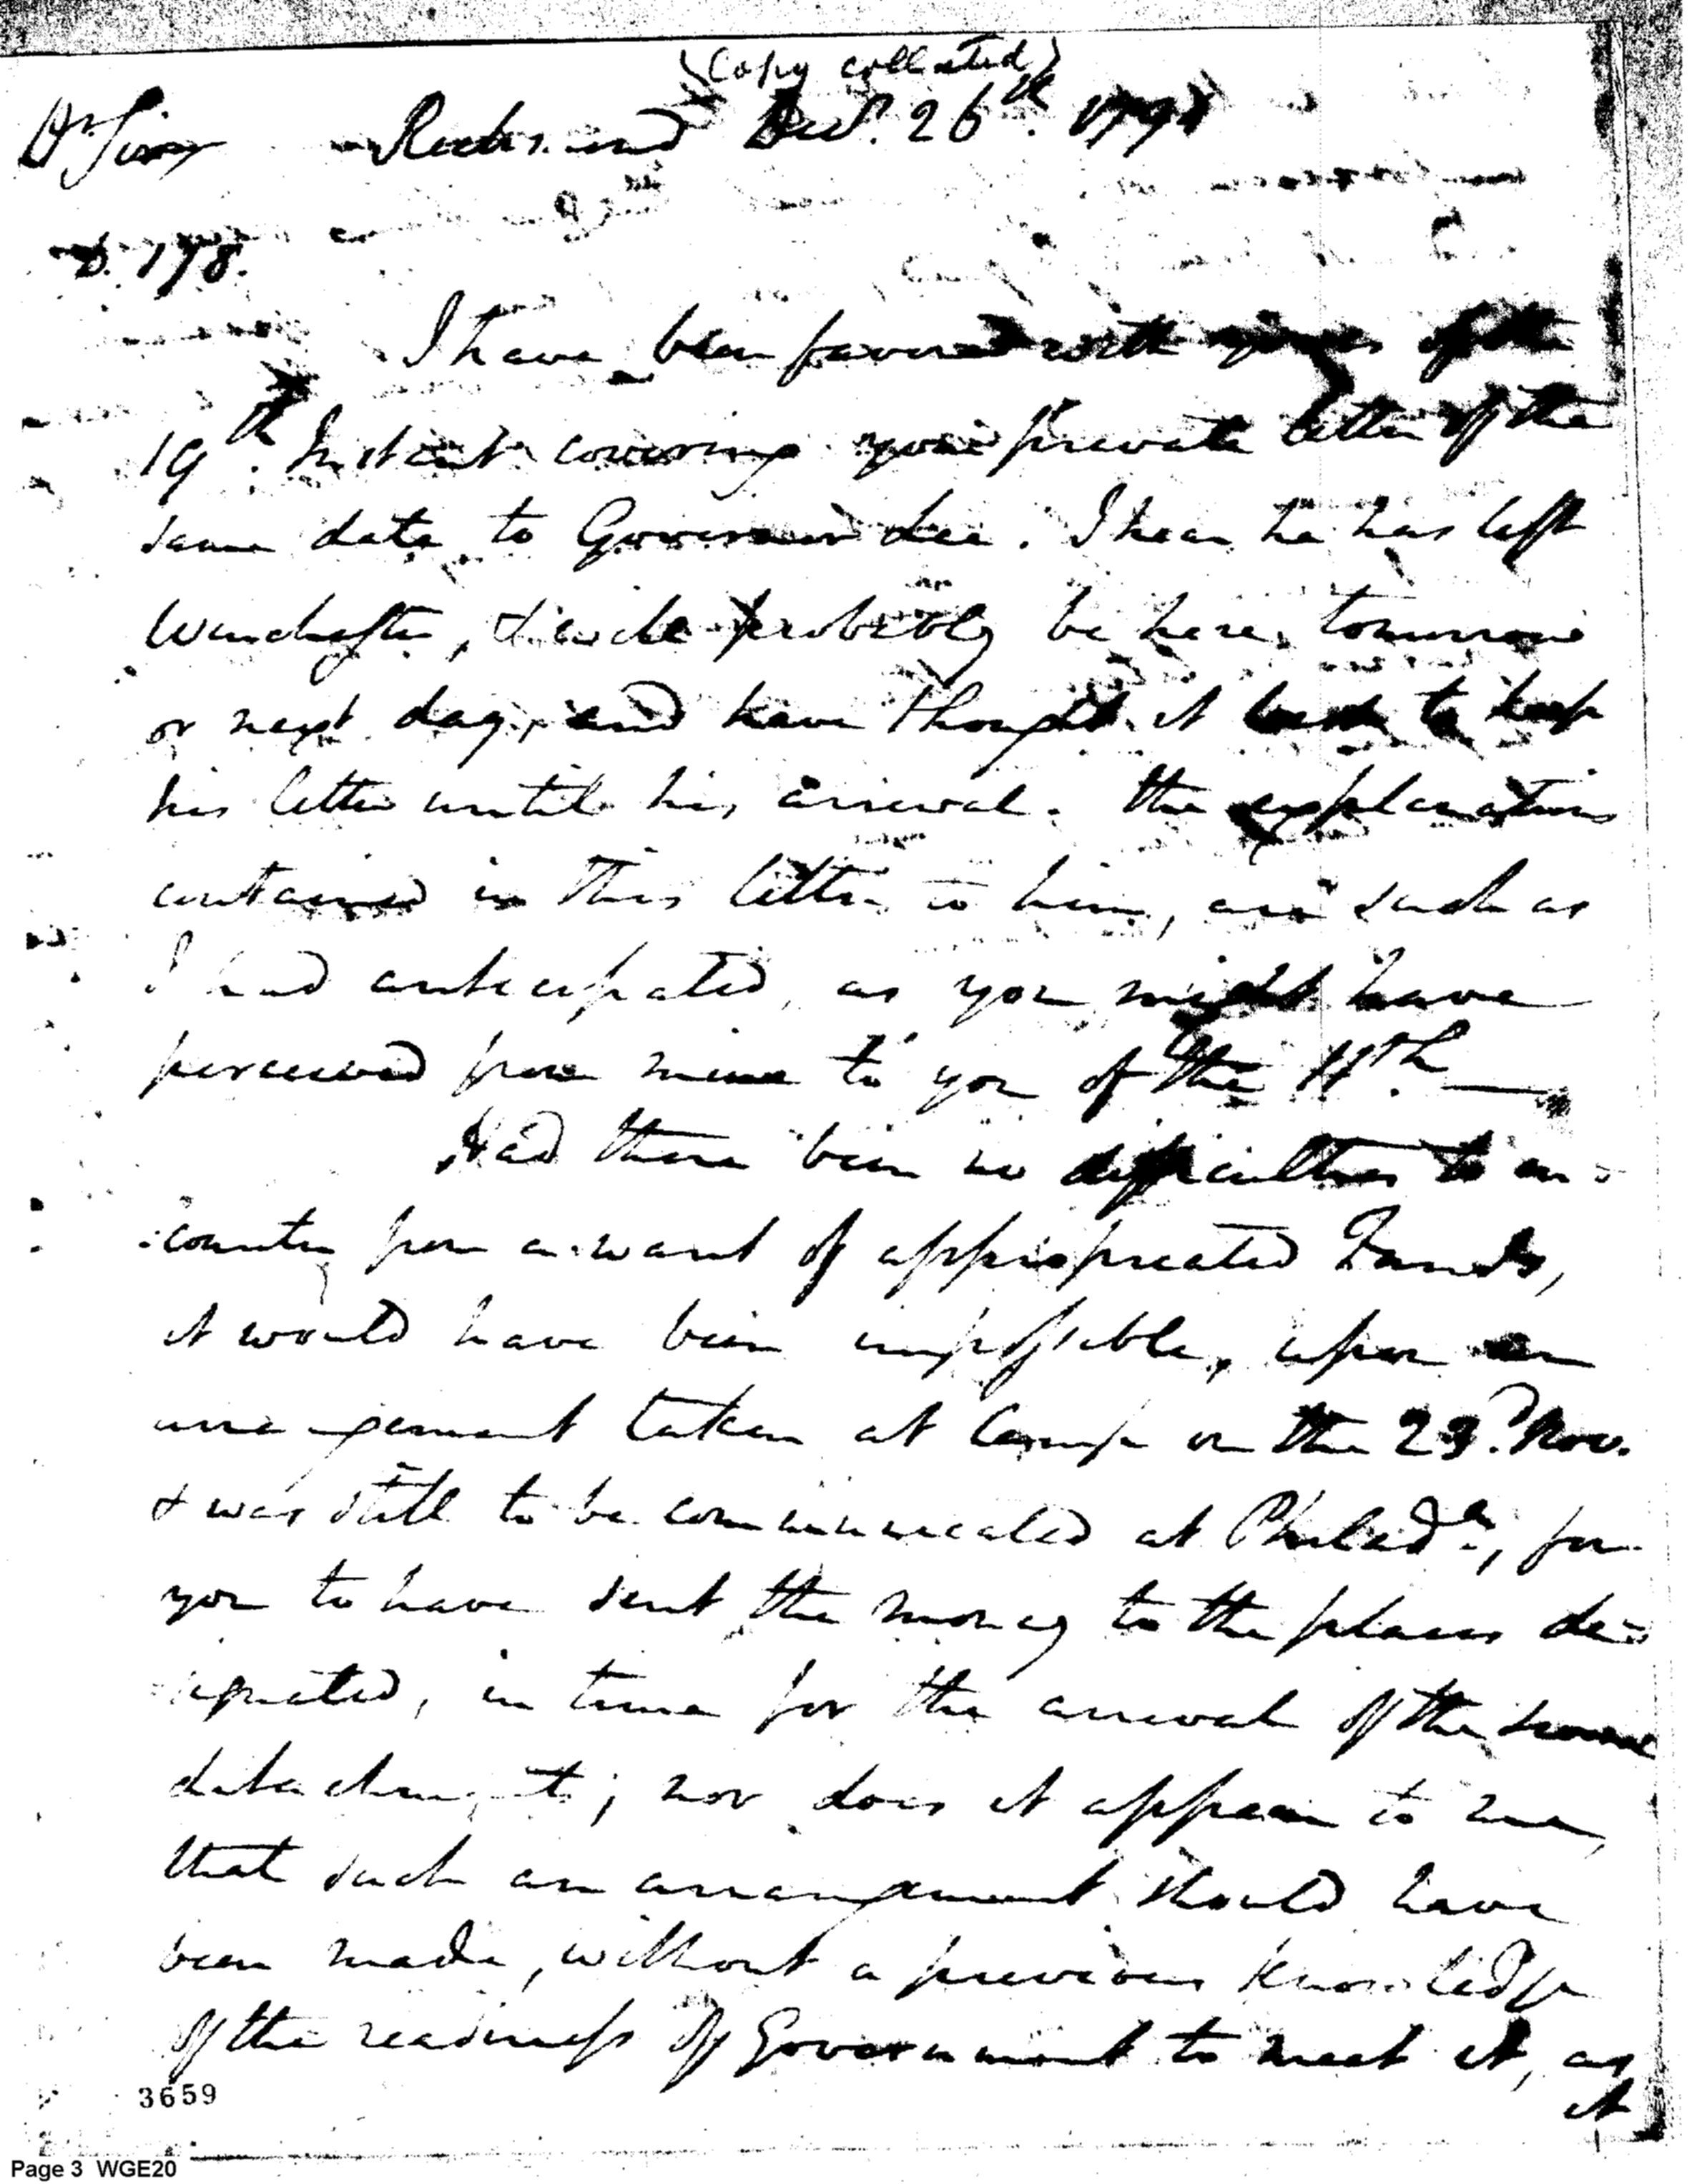 (Copy collated)
Dr Sir Richmond Decr. 26th. 1794
D. 178.
I have been favored with yours of the
19th. Instant covering your private letter of the
same date to Governor Lee. I hear he has left
Winchester, & will probably be here tomorrow
or next day, and have thought it best to keep
his letter until his arrival. The explanations
contained in this letter to him, are such as
I had anticipated, as you might have
perceived from mine to you of the 11th.
Had there been no difficulties to en-
counter from a want of appropriated Funds,
it would have been impossible, upon an
arrangement taken at Camp on the 23d. Nov.
& was still to be communicated at Philada., for
you to have sent the money to the places de-
signated, in time for the arrival of the several
detachments; nor does it appear to me,
that such an arrangement should have
been made, without a previous knowledge
of the readiness of Government to meet it, as
it
3659
Page 3 WGE20